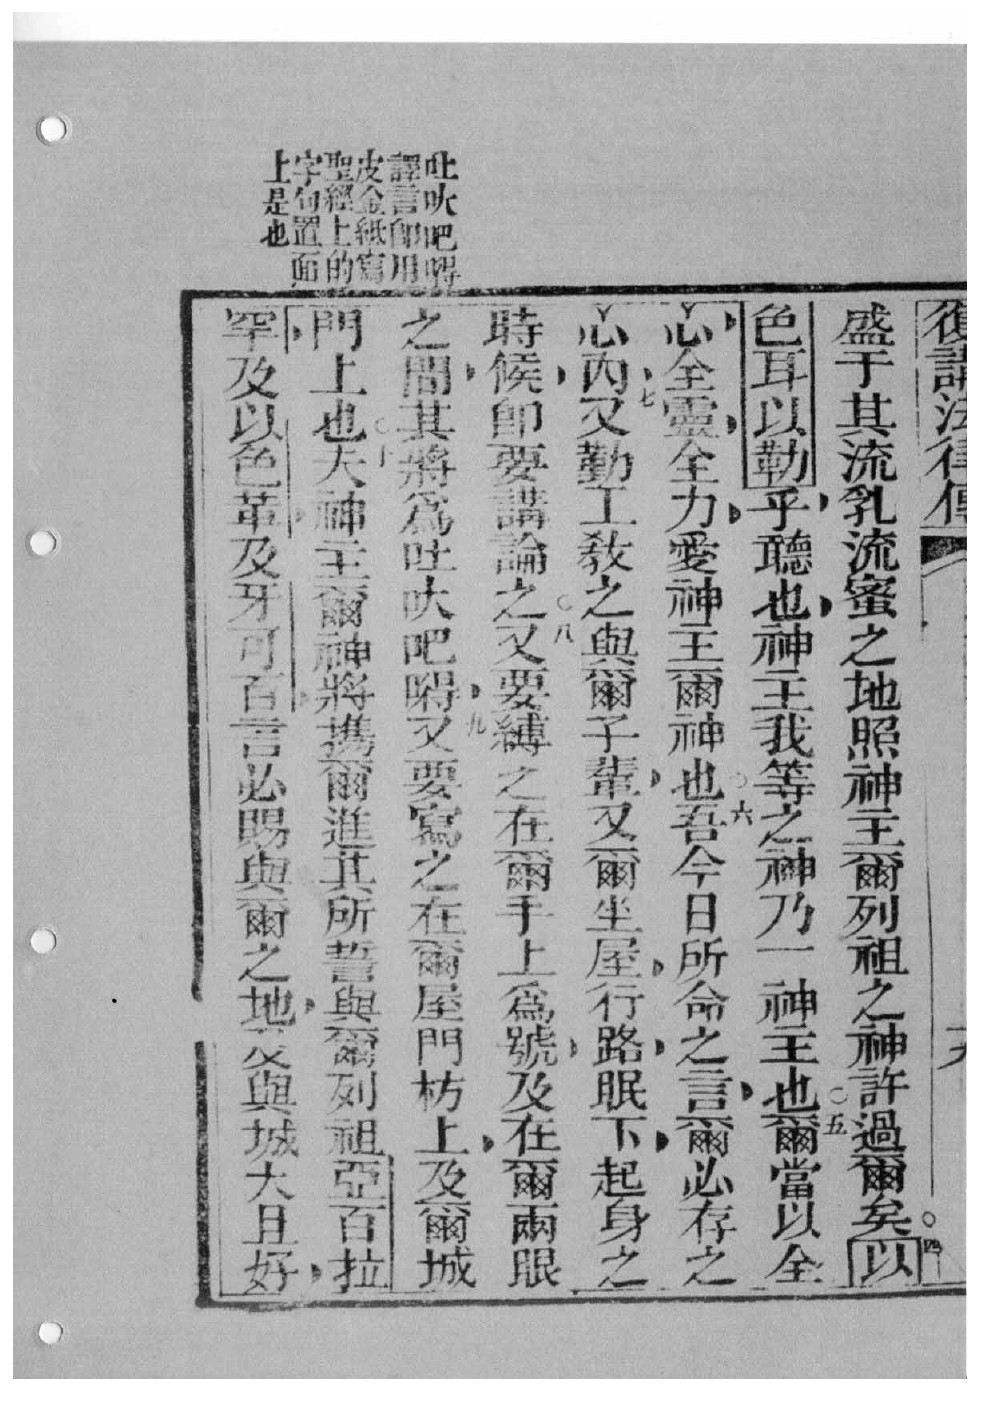 復講法律傳
盛于其流乳流蜜之地照神主爾列祖之神許過爾矣〇四以
色耳以勒乎聽也神主我等之神乃一神主也〇五爾當以全
心全靈全力愛神主爾神也〇六吾今日所命之言爾必存之
心內〇七又勤工教之與爾子輩又爾坐屋行路眠下起身之
時候卽要講論之〇八又要縛之在爾手上爲號及在爾兩眼
之間其將爲吐吠吧嘚〇九又要寫之在爾屋門枋上及爾城
門上也〇十夫神主爾神將攜爾進其所誓與爾列祖亞百拉
罕及以色革及牙可百言必賜與爾之地及與城大且好
吐吠吧嘚
譯言卽用
皮金紙寫
聖經上的
字句置面
上是也